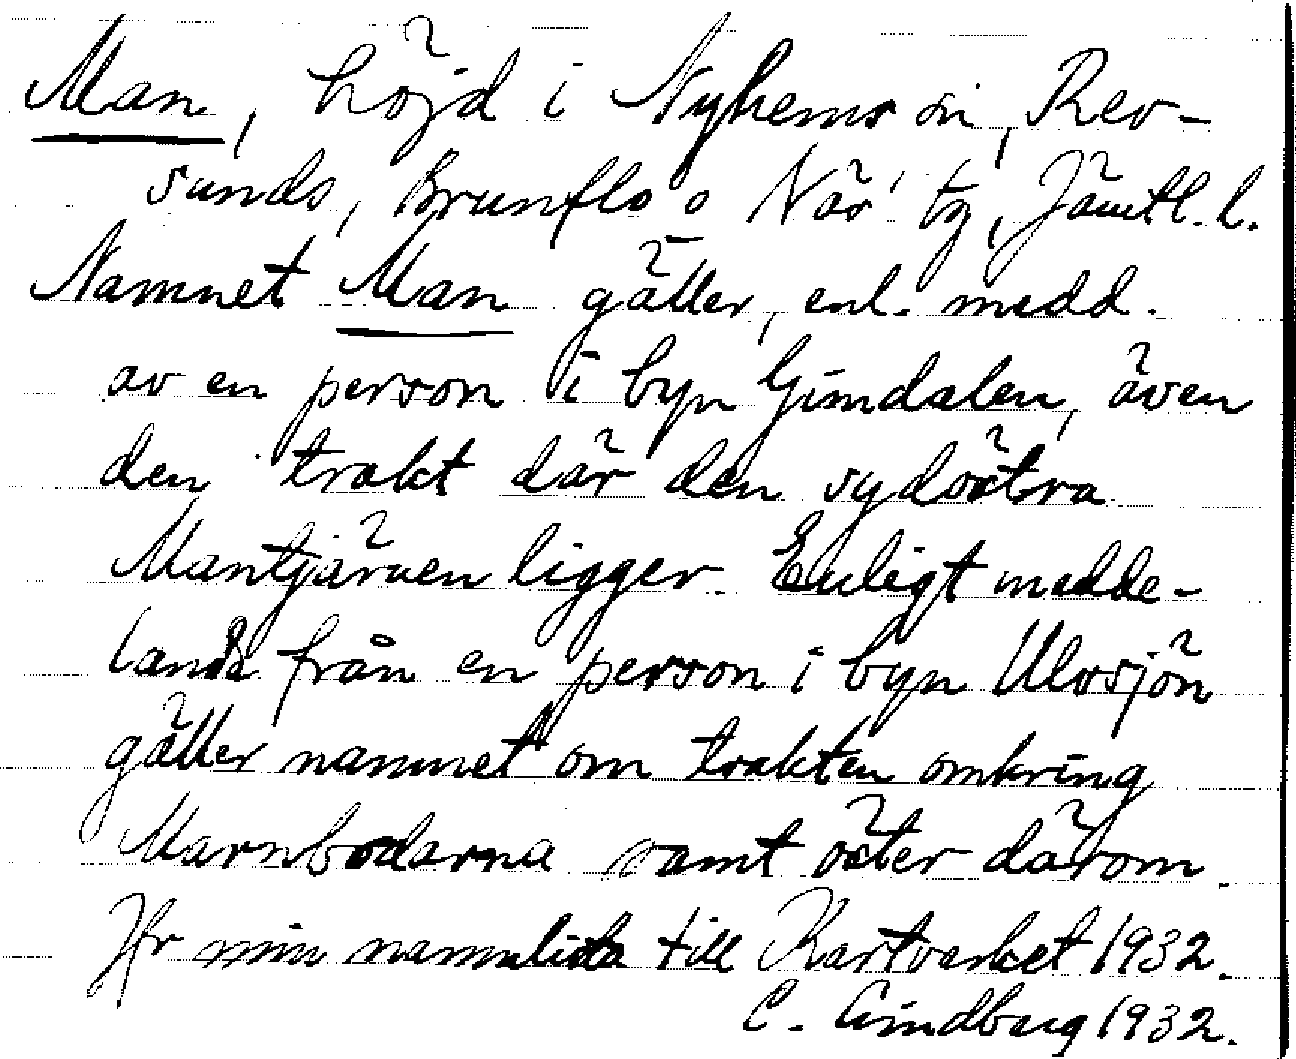 Man, höjd i Nyhems sn, Rev-
sunds, Brunflo o Näs tg, Jämtl. l.
Namnet Man gäller, enl. medd.
av en person i byn Gimdalen, även
den trakt där den sydöstra
Mantjärnen ligger. Enligt medde-
lande från en person i byn Ulvsjön
gäller namnet om trakten omkring
Marnbodarna samt öster därom.
Jfr min namnlista till Kartverket 1932.
C. Lindberg 1932.